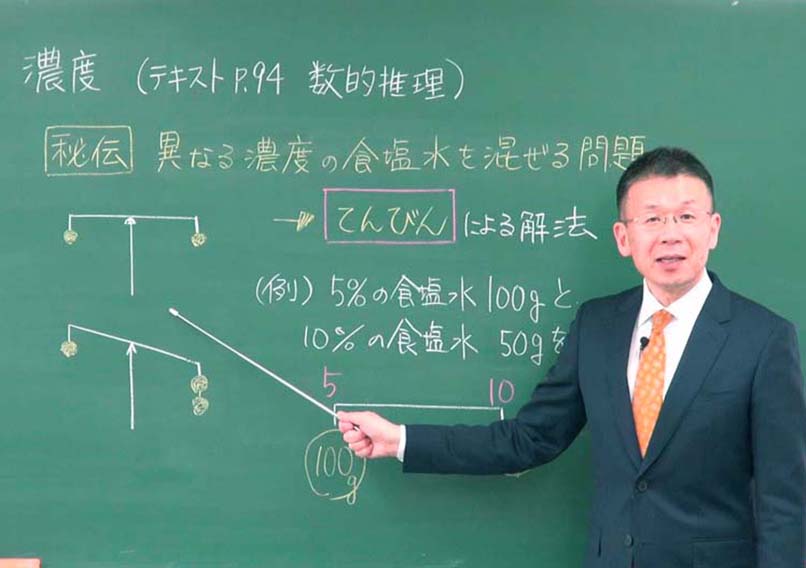 濃度 (テキストP.94 数的推理)
秘伝 異なる濃度の食塩水を混ぜる問題
→ てんびん による解法
(例) 5%の食塩水100gと
10%の食塩水 50gを
5 10
100g